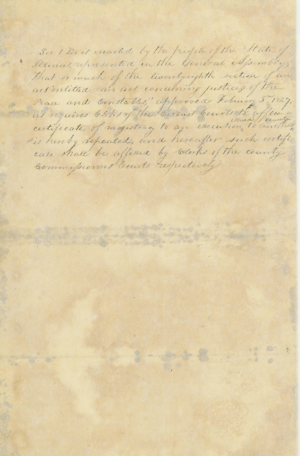 Sec 1 Be it enacted by the people of the State of
Illinois represented in the General Assembly
that so much of the twentyeighth section of an
act entitled "An act concerning justices of the
Peace and Constables" approved February 3d 1827
as requires Clerks of the Circuit Courts to affix
certificate of magistracy to an execution
is hereby repealed, and hereafter such certifi
cate shall be affixed by Clerks of the county
Commissioners Courts respectively